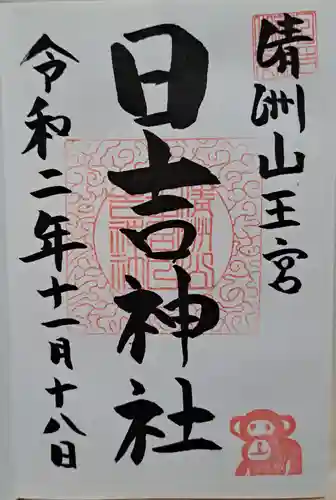 清洲山王宮
日吉神社
令和二年十一月十八日